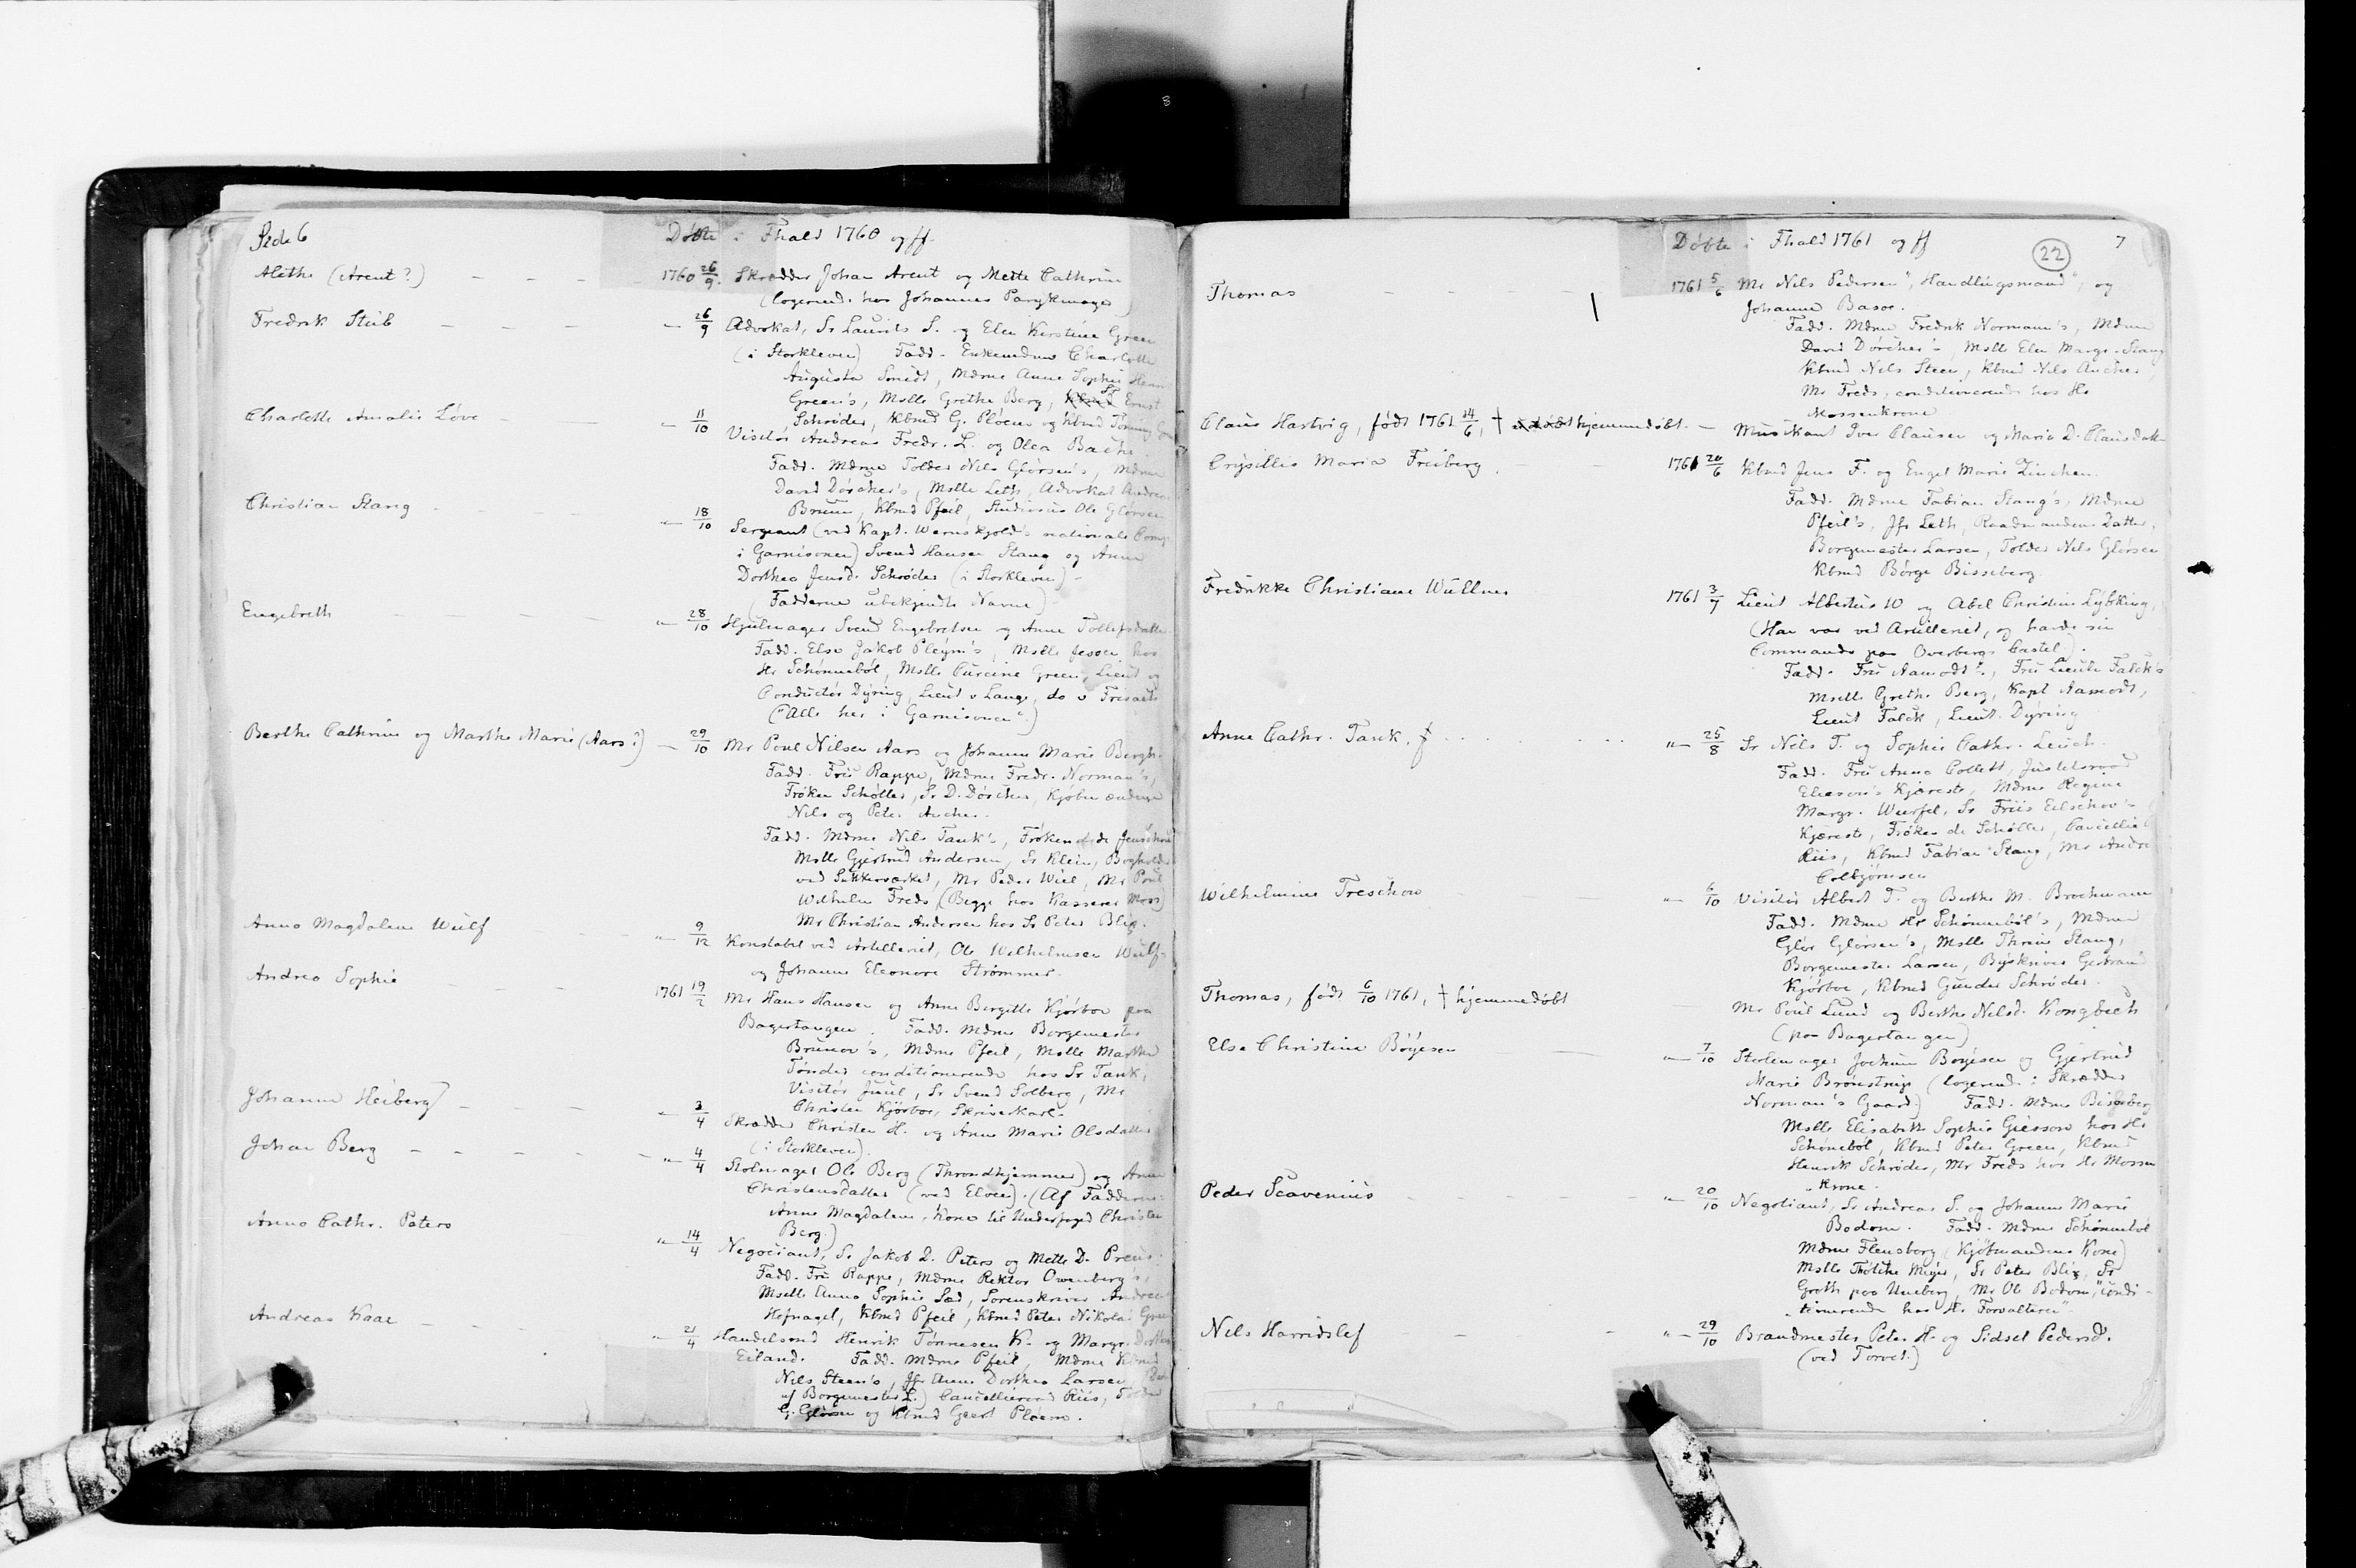 Side 6
Døbte i Fhald 1760 og ff.
Alethe (Arent?) — — — 1760 26/9. Skrædder Johan Arent og Mette Cathrine
(logerend. hos Johannes Parykmager)
Fredrik Stub — — — — 26/9 Advokat, Sr Laurits S. og Elen Kirstine Green
(i Storkleven) Fadd. Enkemdme Charlotte
Augusta Smidt, Mdme Anne Sophie Henr
Green's, Mslle Grethe Berg, Sr Ernst
Schrøder, Kbmd G. Pløen og Kbmd
Charlotte Amalie Løve — — " 11/10 Visitør Andreas Fredr. L. og Olea Bache
Fadd. Mdme Tolder Nils Glørsen's, Mdme
David Døscher's, Mslle Leth, Advokat Andreas
Bruun, Kbmd Pfeil, Studiosus Ole Glørsen
Christian Stang — " 18/10 Sergeant (ved Kapt. Wernskjold's nationale Comp.
i Garnisonen) Svend Hansen Stang og Anne
Dorthea Jensd. Schrøder (i Storkleven) -
(Fadderne ubekjendte Navne)
Engebreth — — — " 28/10 Hjulmager Svend Engebretsen og Anne Tollefsdatter
Fadd. Else Jakob Pleym's, Mslle Jessen hos
Hr Schønnebøl, Mslle Curcine Green, Lieut og
Conductør Dyring, Lieut v Lange, do v
("Alle her i Garnisonen".)
Berthe Cathrine og Marthe Marie (Aars?) — 29/10 Mr Poul Nilsen Aars og Johanne Marie Bergh.
Fadd. Fru Rappe, Mdme Fredr. Norman's,
Frøken Schøller, Sr D. Døscher, Kjøbmændene
Nils og Peter Ancher.
Fadd. Mdme Nils Tank's, Frøken
Mslle Gjertrud Andersen, Sr Klein, Bogholder
ved Sukkerværket, Mr Peder Wiel, Mr Poul
Wilhelm Freds (Begge hos Kasserer Moss)
Mr Christian Andersen hos Sr Peter Blix.
Anne Magdalene Wulf — — " 9/12 Konstabel ved Artilleriet, Ole Wilhelmsen Wulf
og Johanne Eleonore Strømmer.
Andrea Sophie — — — 1761 19/2 Mr Hans Hansen og Anne Birgitte Kjørboe paa
Bagertangen. Fadd. Mdme Borgemester
Brunow's, Mdme Pfeil, Mslle Marthe
Tønder conditionerende hos Sr Tank,
Visitør Juul, Sr Svend Solberg, Mr
Christen Kjørboe, Skriverkarl.
Johanne Heiberg — — — " 3/4 Skrædder Christen H. og Anne Marie Olsdatter
(i Storkleven).
Johan Berg — — — — " 4/4 Stolmager Ole Berg (Throndhjemmer) og Anne
Christensdatter (ved Elven). (Af Fadderne:
Anne Magdalene, Kone til Underfoged Christen
Berg.)
Anne Cathr. Peters — — " 14/4 Negociant, Sr Jakob D. Peters og Mette D. Preus.
Fadd. Fru Rappe, Mdme Rektor Owenberg's,
Mslle Anna Sophie Sød, Sorenskriver Andreas
Hofnagel, Kbmd Pfeil, Kbmd Peter Nikolai Green
Andreas Kaae — — — " 21/4 Handelsmd Henrik Tønnesen K. og Margr. Dorthea
Eiland. Fadd. Mdme Pfeil, Mdme Kbmd
Nils Steen's, Jfr Anne Dorthea Larsen
af Borgemester L.) Cancelliraad Riis, Tolder
G. Glørsen og Kbmd Geert Pløenn.
Døbte i Fhald 1761 og ff
22
7
Thomas — — — — 1761 5/6 Mr Nils Pedersen "Handlingsmand", og
Johanne Basøe.
Fadd. Mdme Fredrik Normann's, Mdme
David Døscher's, Mslle Elen Margr. Stang
Kbmd Nils Steen, Kbmd Nils Ancher,
Mr Freds, conditionerende hos Hr
Mossenkrone
Claus Hartvig, født 1761 14/6, † hjemmedøbt. — Musikant Iver Clausen og Maria D. Clausdatter
Crysillis Maria Freiberg. — — 1761 20/6 Kbmd Jens F. og Engel Marie Zinchen.
Fadd. Mdme Fabian Stang's, Mdme
Pfeil's, Jfr Leth, Raadmandens Datter,
Borgemester Larsen, Tolder Nils Glørsen
Kbmd Børge Bisseberg
Fredrikke Christiane Wüllner 1761 3/7 Lieut Albertus W og Abel Christine Lybking,
(Han var ved Artilleriet, og havde sin
Commando paa Overbergs Castel).
Fadd. Fru Aamodt's, Fru Lieut. Falck's
Mslle Grethe Berg, Kapt Aamodt,
Lieut Falck, Lieut. Dyring
Anne Cathr. Tank. " 25/8 Sr Nils T. og Sophie Cathr. Leuch.
Fadd. Fru Anna Collett, Justitsraad
Elieson's Kjæreste, Mdme Regine
Margr. Wurfel, Sr Friis Eilschov's
Kjæreste, Frøken de Schøller, Cancellie
Riis, Kbmd Fabian Stang, Mr Andre
Colbjørnsen
Wilhelmine Treschow — " 6/10 Visitør Albert T. og Berthe M. Brochmann
Fadd. Mdme Hr Schønnebøl's, Mdme
Glør Glørsen's, Mslle Thrine Stang,
Borgemester Larsen, Byskriver Gertrand
Kjørboe, Kbmd Gunder Schrøder.
Thomas, født 6/10 1761, † hjemmedøbt — Mr Poul Lund og Berthe Nilsd. Kongbech
(paa Bagertangen)
Else Christine Böyesen — " 7/10 Stolemager Jochum Boyesen og Gjertrud
Marie Brönstrup (logerend. i Skrædder
Norman's Gaard) Fadd. Mdme Bisseberg
Mslle Elisabeth Sophie Giessow hos Hr
Schønebøl, Kbmd Peter Green, Kbmd
Henrik Schrøder, Mr Freds hos Hr Mossen
"krone.
Peder Scavenius — — — — " 20/10 Negotiant, Sr Andreas S. og Johanne Marie
Bodom. Fadd. Mdme Schønnebøl
Mdme Flensborg (Kjøbmandens Kone)
Mslle Thölche Meyer, Sr Peter Blix, Sr
Groth paa Uneberg, Mr Ole Bodom, "condi-
"tionerende hos Hr Forvalteren".
Nils Harridslef — — " 29/10 Brandmester Peter H. og Sidsel Pedersd.
(ved Torvet.)